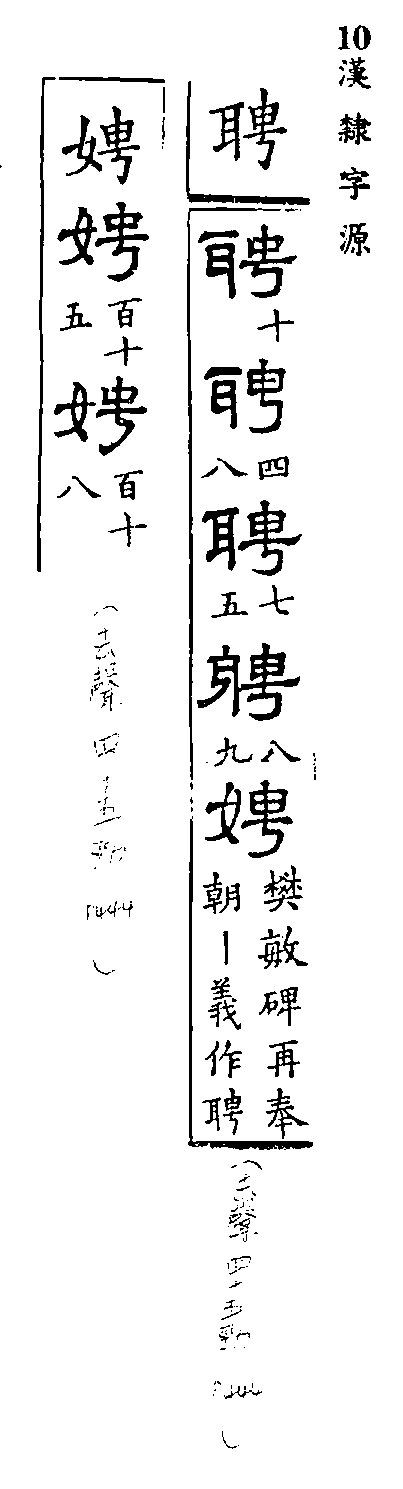 10漢隸字源
聘
聘十聘四八聘七五聘八九娉樊敏碑再奉朝丨義作聘
（去聲四十五勁
）
娉娉百十五娉百十八
（去聲四十五勁
）